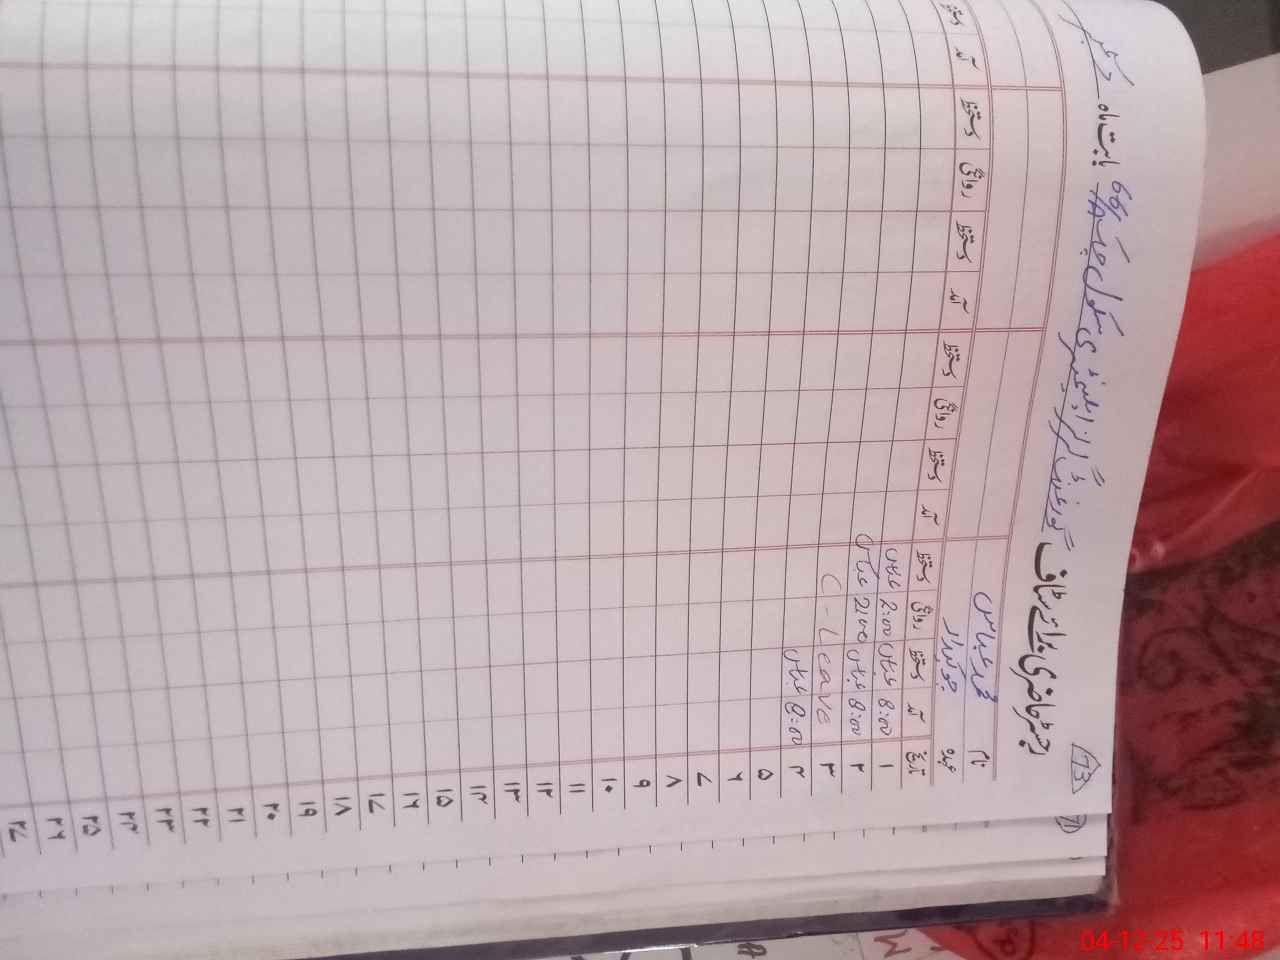 73
رجسٹر حاضری برائے سٹاف گورنمنٹ گرلز ایلیمنٹری سکول چک 66 بابت ماہ دسمبر
نام محمد عباس
عہدہ چوکیدار
تاریخ آمد دستخط روانگی دستخط آمد دستخط روانگی دستخط آمد دستخط روانگی دستخط آمد دستخط
۱ 8:00 عباس 2:00 عباس
۲ 8:00 عباس 2:00 عباس
۳ C-Leave
۴ 8:00 عباس
۵
۶
۷
۸
۹
۱۰
۱۱
۱۲
۱۳
۱۴
۱۵
۱۶
۱۷
۱۸
۱۹
۲۰
۲۱
۲۲
۲۳
۲۴
۲۵
۲۶
۲۷
71
04-12-25 11:48